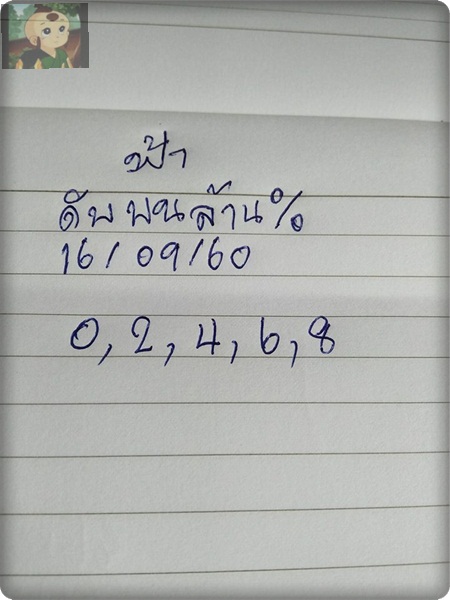 ฟ้า
ดับพันล้าน%
16/09/60
0,2,4,6,8